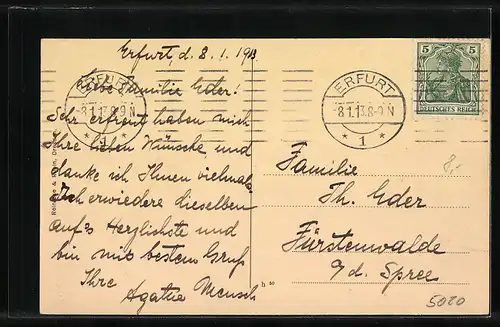 Erfurt, d. 8.1.1913
Liebe Familie Eder!
Sehr erfreut haben mich
Ihre lieben Wünsche, und
danke ich Ihnen vielmals.
Ich erwiedere dieselben
auf's Herzlichste und
bin mit bestem Gruß
Ihre
Agathe Mensch
ERFURT
8.1.13.8-9N
* 1 *
ERFURT
8.1.13.8-9N
* 1 *
5 5
DEUTSCHES REICH
8,-
Familie
Th. Eder
Fürstenwalde
a/d. Spree
h 30
5020